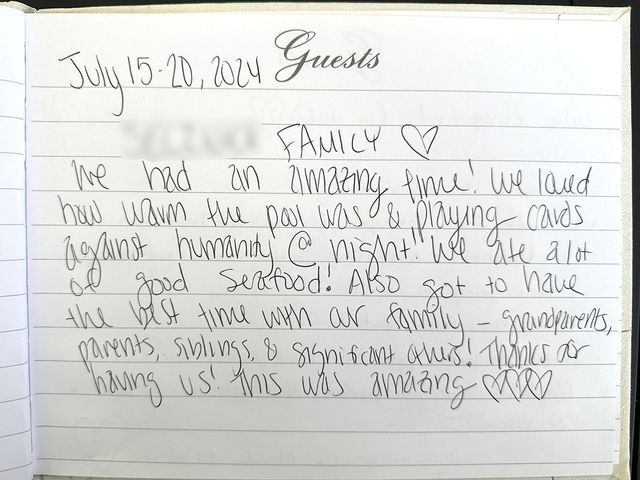 Guests
July 15-20, 2024
FAMILY ♡
We had an amazing time! We loved
how warm the pool was & playing cards
against humanity @ night! We ate alot
of good seafood! Also got to have
the best time with our family - grandparents,
parents, siblings, & significant others! Thanks for
having us! This was amazing ♡♡♡